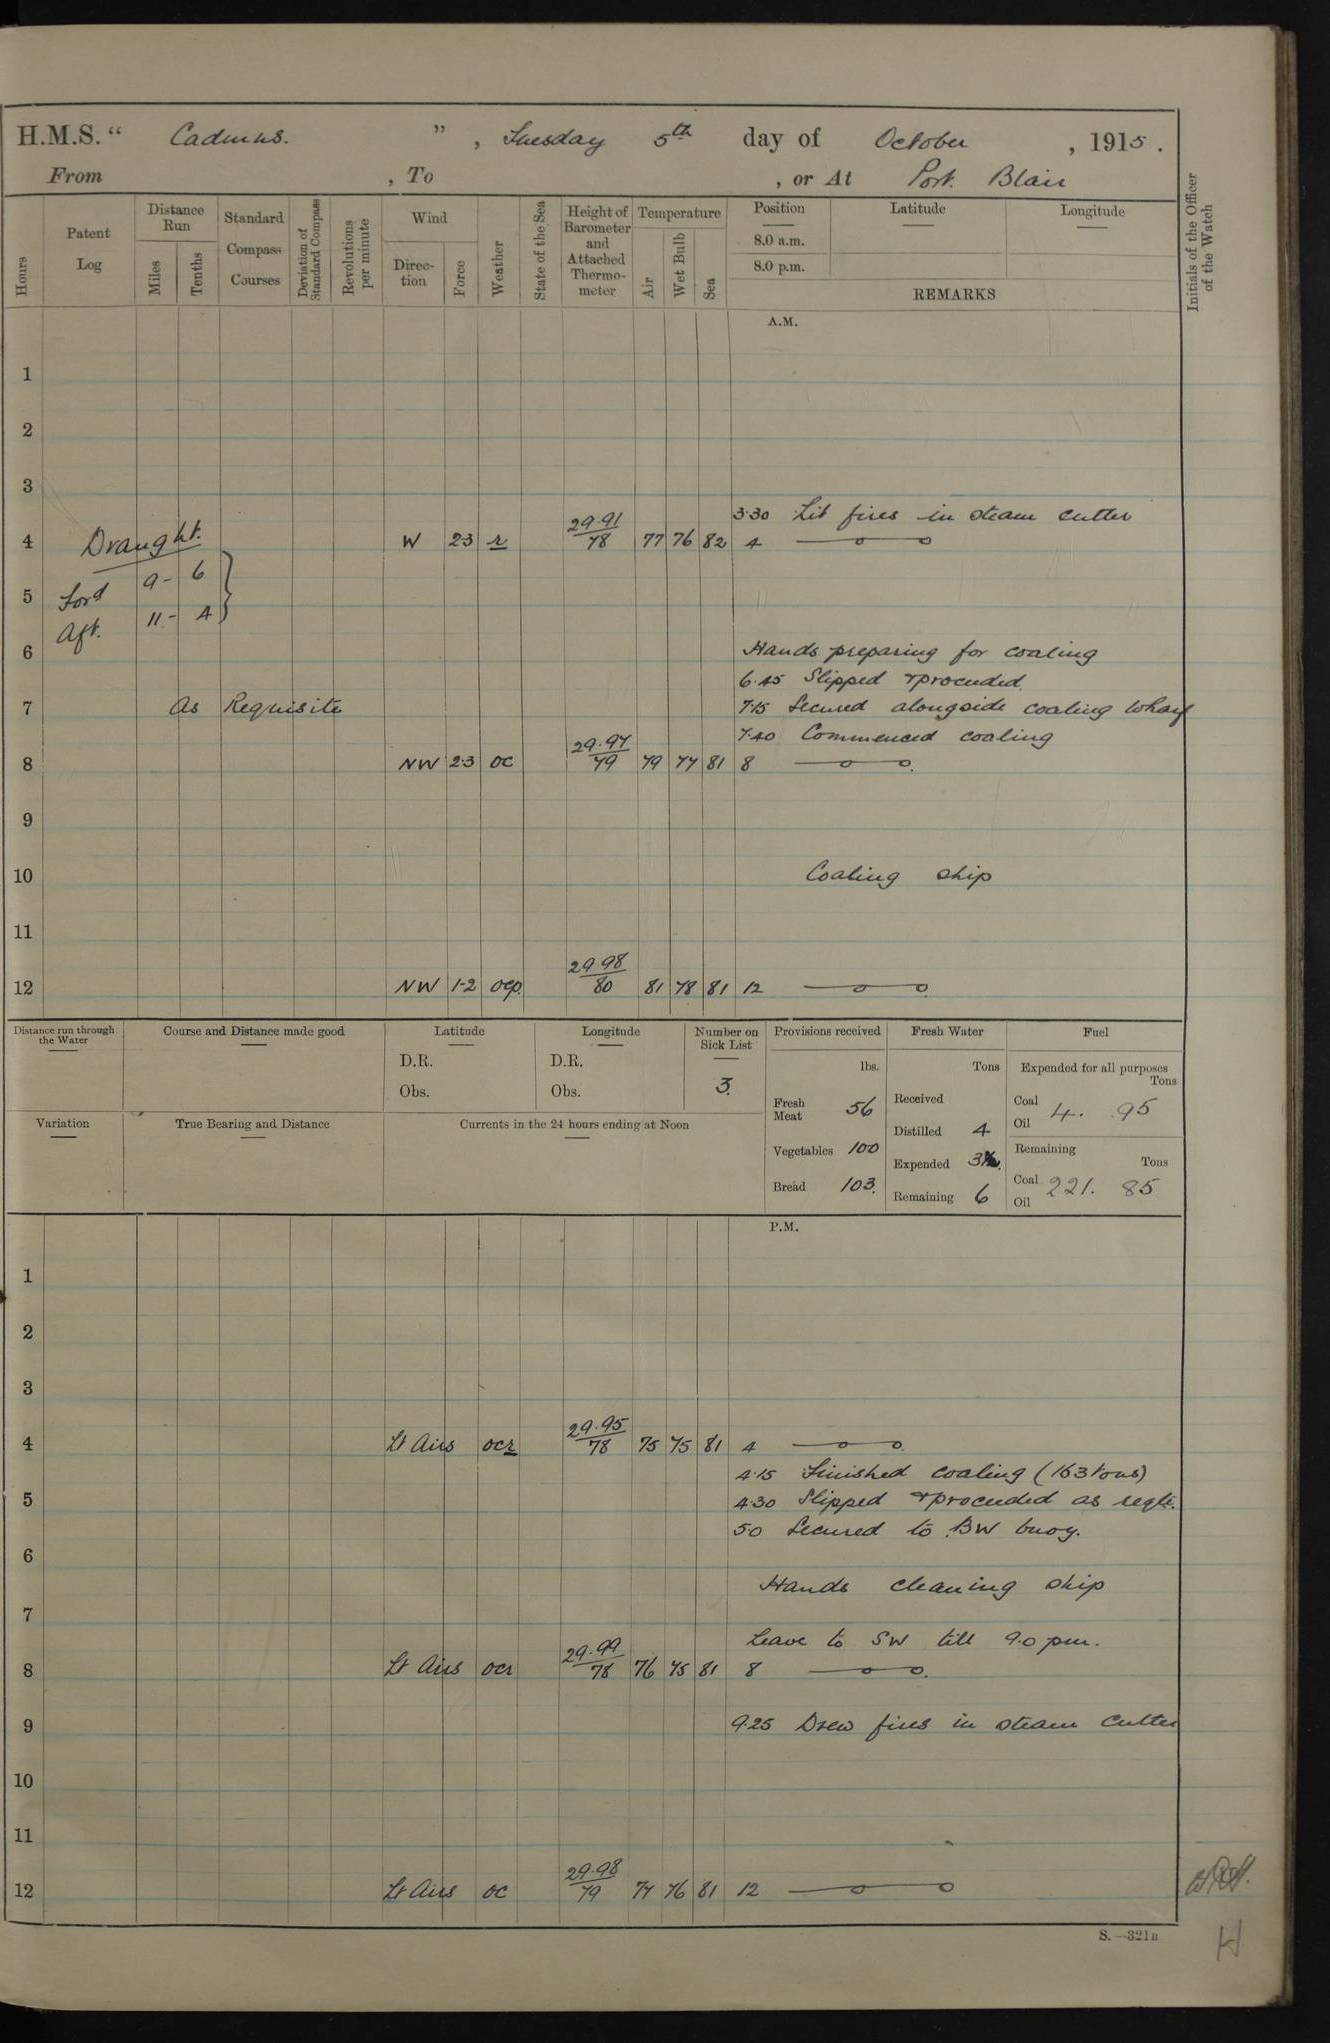 H.M.S. “ Cadmus. ” , Tuesday 5th day of October , 1915 .
From , To , or At Port Blair
Hours
Patent Log
Distance Run
Miles
Tenths
Standard Compass Courses
Deviation of Standard Compass
Revolutions per minute
Wind
Direction
Force
Weather
State of the Sea
Height of Barometer and Attached Thermometer
Temperature
Air
Wet Bulb
Sea
Position
8.0 a.m.
8.0 p.m.
Latitude
Longitude
REMARKS
Initials of the Officer of the Watch
A.M.
1
2
3
3·30 Lit fires in steam cutter
4 Draught. W 2·3 r 29·91 78 77 76 82 4
9 - 6
5 Ford
11 - 4
Aft.
6 Hands preparing for coaling
6·45 Slipped & proceeded
7 As Requisite 7·15 Secured alongside coaling Wharf
7·40 Commenced coaling
8 NW 2·3 oc 29·97 79 79 77 81 8
9
10 Coaling ship
11
12 NW 1-2 ocp. 29·98 80 81 78 81 12
Distance run through the Water
Course and Distance made good
Latitude
D.R.
Obs.
Longitude
D.R.
Obs.
Number on Sick List
3.
Provisions received
lbs.
Fresh Meat 56
Vegetables 100
Bread 103.
Fresh Water
Tons
Received
Distilled 4
Expended 3
Remaining 6
Fuel
Expended for all purposes
Tons
Coal 4. 95
Oil
Remaining
Tons
Coal 221. 85
Oil
Variation
True Bearing and Distance
Currents in the 24 hours ending at Noon
P.M.
1
2
3
4 Lt Airs ocr 29·95 78 75 75 81 4
4·15 Finished coaling (163 tons)
5 4·30 Slipped & proceeded as reqte.
5·0 Secured to BW buoy.
6
Hands cleaning ship
7
Leave to SW till 9·0 pm.
8 Lt Airs ocr 29·99 78 76 75 81 8
9 9·25 Drew fires in steam Cutter
10
11
12 Lt Airs oc 29·98 79 77 76 81 12
S.—321B
H